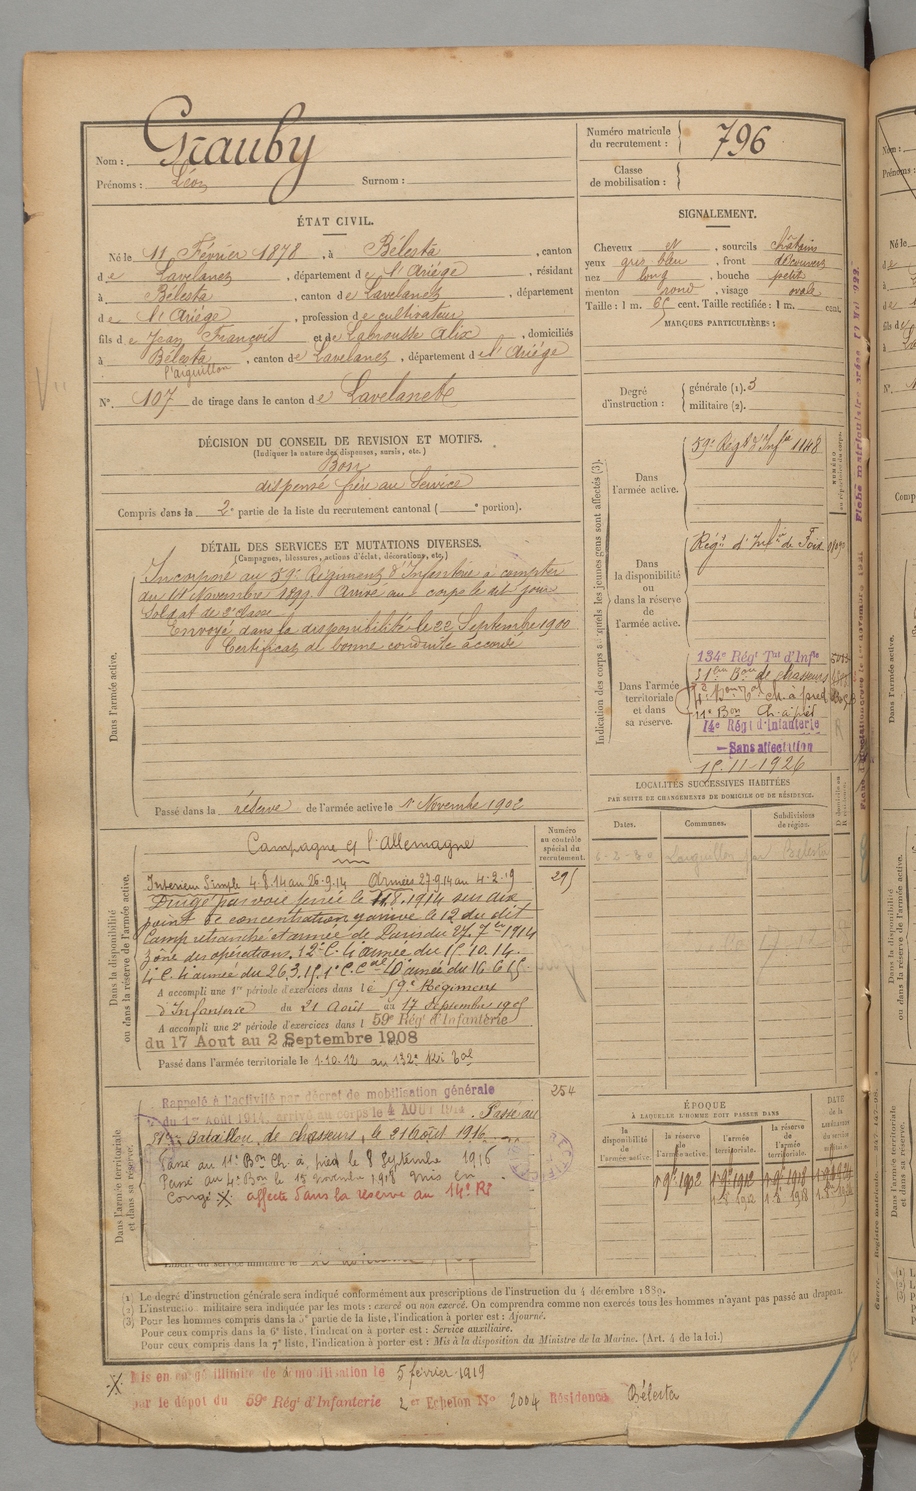 Nom : Grauby
Prénoms : Léon Surnom :
ÉTAT CIVIL.
Né le 11 Février 1878, à Bélesta, canton
de Lavelanet, département de l'Ariége, résidant
à Bélesta, canton de Lavelanet, département
de l'Ariége, profession de cultivateur
fils de Jean François et de Labrousse Alix, domiciliés
à Bélesta, canton de Lavelanet, département de l'Ariége
l'aiguillon
N° 107 de tirage dans le canton de Lavelanet
DÉCISION DU CONSEIL DE REVISION ET MOTIFS.
(Indiquer la nature des dispenses, sursis, etc.)
Bon
dispensé frère au Service
Compris dans la 2e partie de la liste du recrutement cantonal ( e portion).
DÉTAIL DES SERVICES ET MUTATIONS DIVERSES.
(Campagnes, blessures, actions d'éclat, décorations, etc.)
Dans l'armée active.
Incorporé au 59e Régiment d'Infanterie à compter
du 14 Novembre 1899. Arrivé au corps le dit jour
Soldat de 2e classe
Envoyé dans la disponibilité le 22 Septembre 1900
Certificat de bonne conduite accordé
Passé dans la réserve de l'armée active le 1er Novembre 1902
Dans la disponibilité
ou dans la réserve de l'armée active.
Numéro
au contrôle
spécial du
recrutement.
Campagne c/ l'Allemagne
295
Intérieur Simple 4.8.14 au 26.9.14 Armées 27.9.14 au 4.2.19
Dirigé par voie ferrée le 11.8.1914 sur
point de concentration y arrive le 12 du dit
Camp retranché et armée de Paris du 27.7bre 1914
Zône des opérations. 12e C. 4e armée du 15.10.14.
4e C. 4e armée du 26.3.15. 10e armée du 16.6.15.
A accompli une 1re période d'exercices dans le 59e Régiment
d'Infanterie du 21 Août au 17 Septembre 1905
A accompli une 2e période d'exercices dans l 59e Régt d'Infanterie
du 17 Aout au 2 Septembre 1908
Passé dans l'armée territoriale le 1.10.12 au 132e Ri Tal
Dans l'armée territoriale
et dans sa réserve.
254
Rappelé à l'activité par décret de mobilisation générale
du 1er Août 1914, arrivé au corps le 4 AOUT 1914. Passé au
51e Bataillon de chasseurs, le 21 Août 1916
Passé au 11e Bon Ch. à pied le 8 Septembre 1916
Passé au 4e Bon le 15 novembre 1918 mis en
Congé X. affecté dans la réserve au 14e Ri
du service militaire le
Numéro matricule
du recrutement : 796
Classe
de mobilisation :
SIGNALEMENT.
Cheveux N, sourcils châtains
yeux gris bleu, front découvert
nez long, bouche petite
menton rond, visage ovale
Taille : 1 m. 65 cent. Taille rectifiée : 1 m. cent.
MARQUES PARTICULIÈRES :
Degré
d'instruction :
générale (1). 3
militaire (2).
Indication des corps auxquels les jeunes gens sont affectés (3).
NUMÉRO
au répertoire du corps.
Dans
l'armée active.
59e Régt d'Infie 1148
Dans
la disponibilité
ou
dans la réserve
de
l'armée active.
Régt d'Infie de Foix
Dans l'armée
territoriale
et dans
sa réserve.
134e Régt Tal d'Infie
51e Bon de chasseurs
11e Bon Ch. à pied
14e Régt d'Infanterie
Sans affectation
15.11.1926
LOCALITÉS SUCCESSIVES HABITÉES
PAR SUITE DE CHANGEMENTS DE DOMICILE OU DE RÉSIDENCE.
Dates. Communes. Subdivisions
de région. D. domicile ou
R. résidence.
6-2-30 L'aiguillon par Bélesta
ÉPOQUE
À LAQUELLE L'HOMME DOIT PASSER DANS
DATE
de la
LIBÉRATION
du service
militaire.
la
disponibilité
de
l'armée active.
la réserve
de
l'armée active.
l'armée
territoriale.
la réserve
de
l'armée
territoriale.
1er 9bre 1902 1er 9bre 1912 1er 9bre 1918
1.8.1912 1.8.1918
(1) Le degré d'instruction générale sera indiqué conformément aux prescriptions de l'instruction du 4 décembre 1889.
(2) L'instruction militaire sera indiquée par les mots : exercé ou non exercé. On comprendra comme non exercés tous les hommes n'ayant pas passé au drapeau.
(3) Pour les hommes compris dans la 5e partie de la liste, l'indication à porter est : Ajourné.
Pour ceux compris dans la 6e liste, l'indication à porter est : Service auxiliaire.
Pour ceux compris dans la 7e liste, l'indication à porter est : Mis à la disposition du Ministre de la Marine. (Art. 4 de la loi.)
X. Mis en congé illimité de démobilisation le 5 février 1919
par le dépôt du 59e Régt d'Infanterie 2e Echelon No 2004 Résidence Bélesta